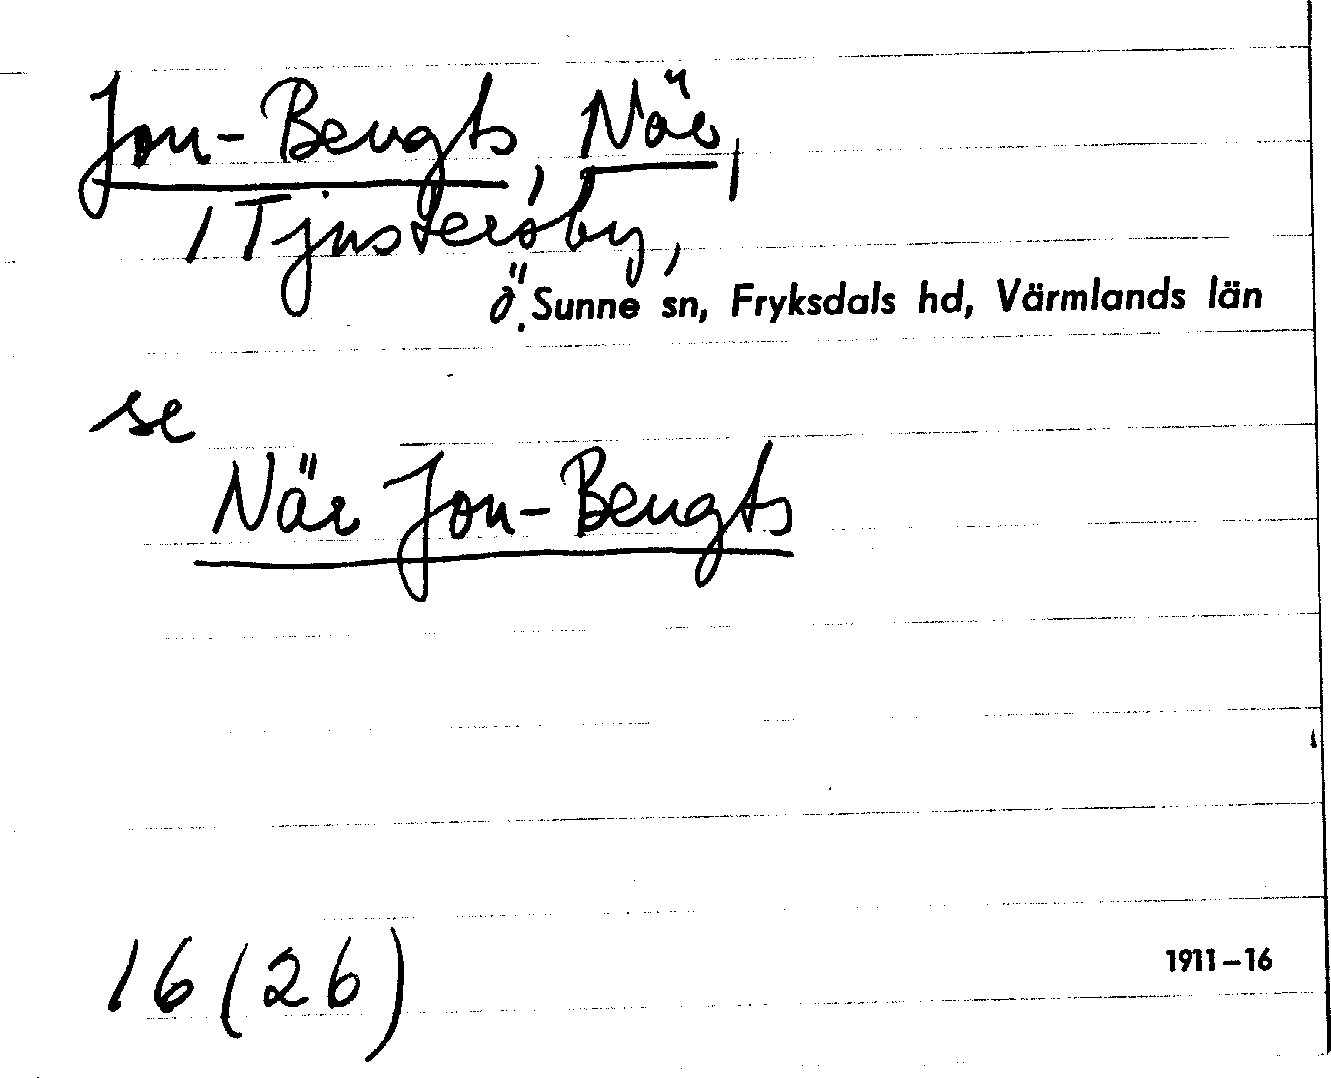 Jon-Bengts, När,
i Tjustersby,
Ö. Sunne sn, Fryksdals hd, Värmlands län
se
När Jon-Bengts
16 (26)
1911–16